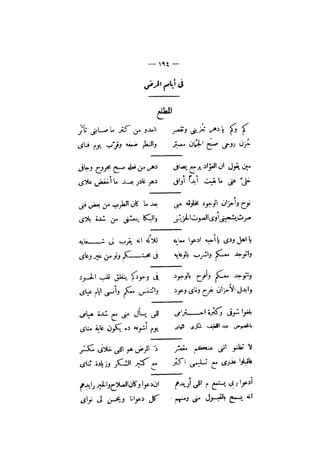 — ١٩٤ —
في أيام المرض
المطلع
كم وكم يا دهر تجزيني وتقصر العدو من كثر ما صابني تأثر
حزن روحي صبح الجبان والنظر ضعفه وقرب يوم فناي
مين يقول ان الفؤاد يرجع يصافي دهر من فعله مسبح مجروح وجافي
خلي فني ما بقيت أبداً أوافي دهر غادر بعد ما أخفض علاي
نوح وأحزان الوجود مخلوقه مني بعد ما كان الطرب من بعض فني
صرت يشجيني أوي الصوت الحزيني والبكا ينعشني من شدة بلاي
يا اهل ودي يا أحبه ادعوا معايه لاله انه يقرب لي شفايه
والتوجد معكم واشرب بالوفايه في محبتكم ونو من غير وعاي
والتوجد معكم وأفرح بالوجود في وجودكم ينغلق قلب الحسود
وابدل الأحزان بفرح وناي وعود والتنس معكم وأنسى ايام عياي
بلغوا شوقي وكثرة احتراني اللي يسأل عني مع شدة هيامي
بالخصوص عبد اللطيف شكري يوم أشوفه ده يكون غاية مناي
لا تظنوا اني عنكم مقصر ده المرض هو اللي خلاني مكسر
فاقبلوا عذري مع تسليمي أكثر مع كثير الشكر وزيادة ثناي
أدعوا ربي يستمع م اللي أريدهم ان دعوا وكان الصلاح والخير رايدهم
انه يسمح بالقبول مني ومنهم كل دعوانا ويحسن لي نواي